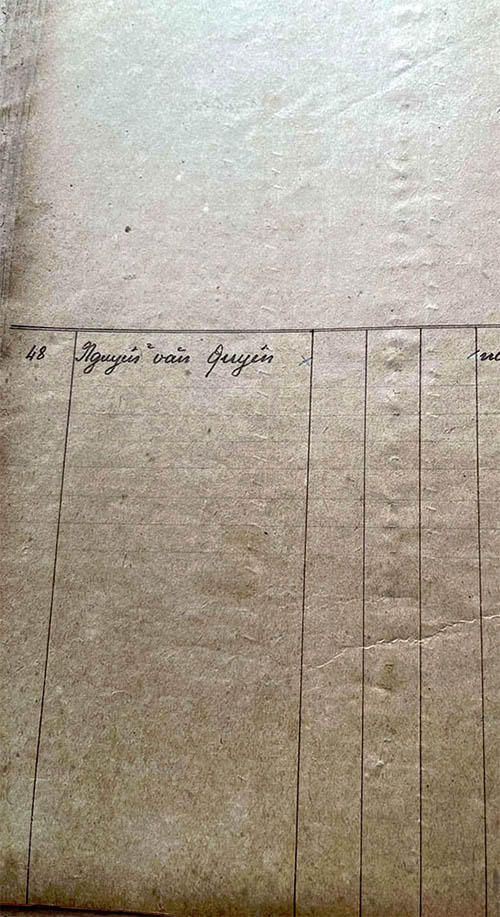 48 Nguyễn văn Quyền